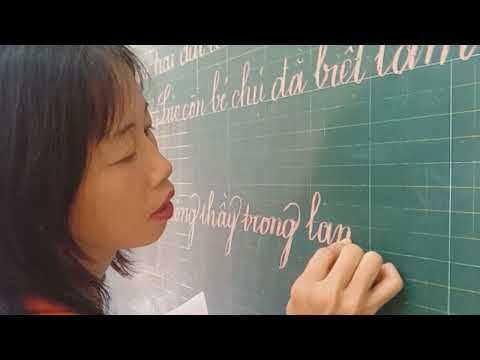 Lúc còn bé chú đã biết làm
thầy trong lan